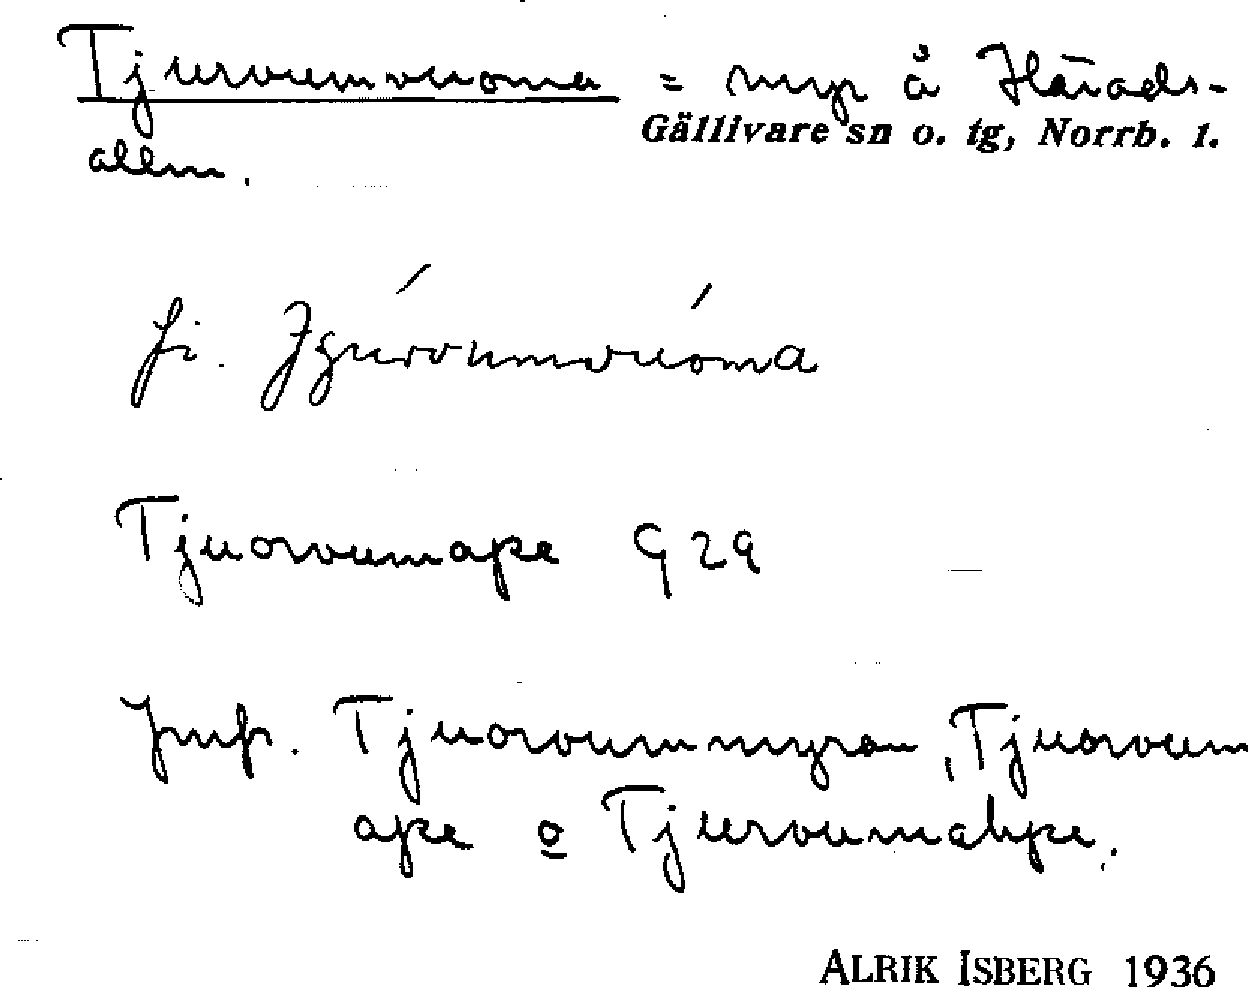 Tjurvumvuoma = myr å Härads-
Gällivare sn o. tg, Norrb. l.
allm.
fi.
Tjuorvumape G 29
Jmf. Tjuorvummyran, Tjuorvum
ape o Tjurvumahpe.
ALRIK ISBERG 1936